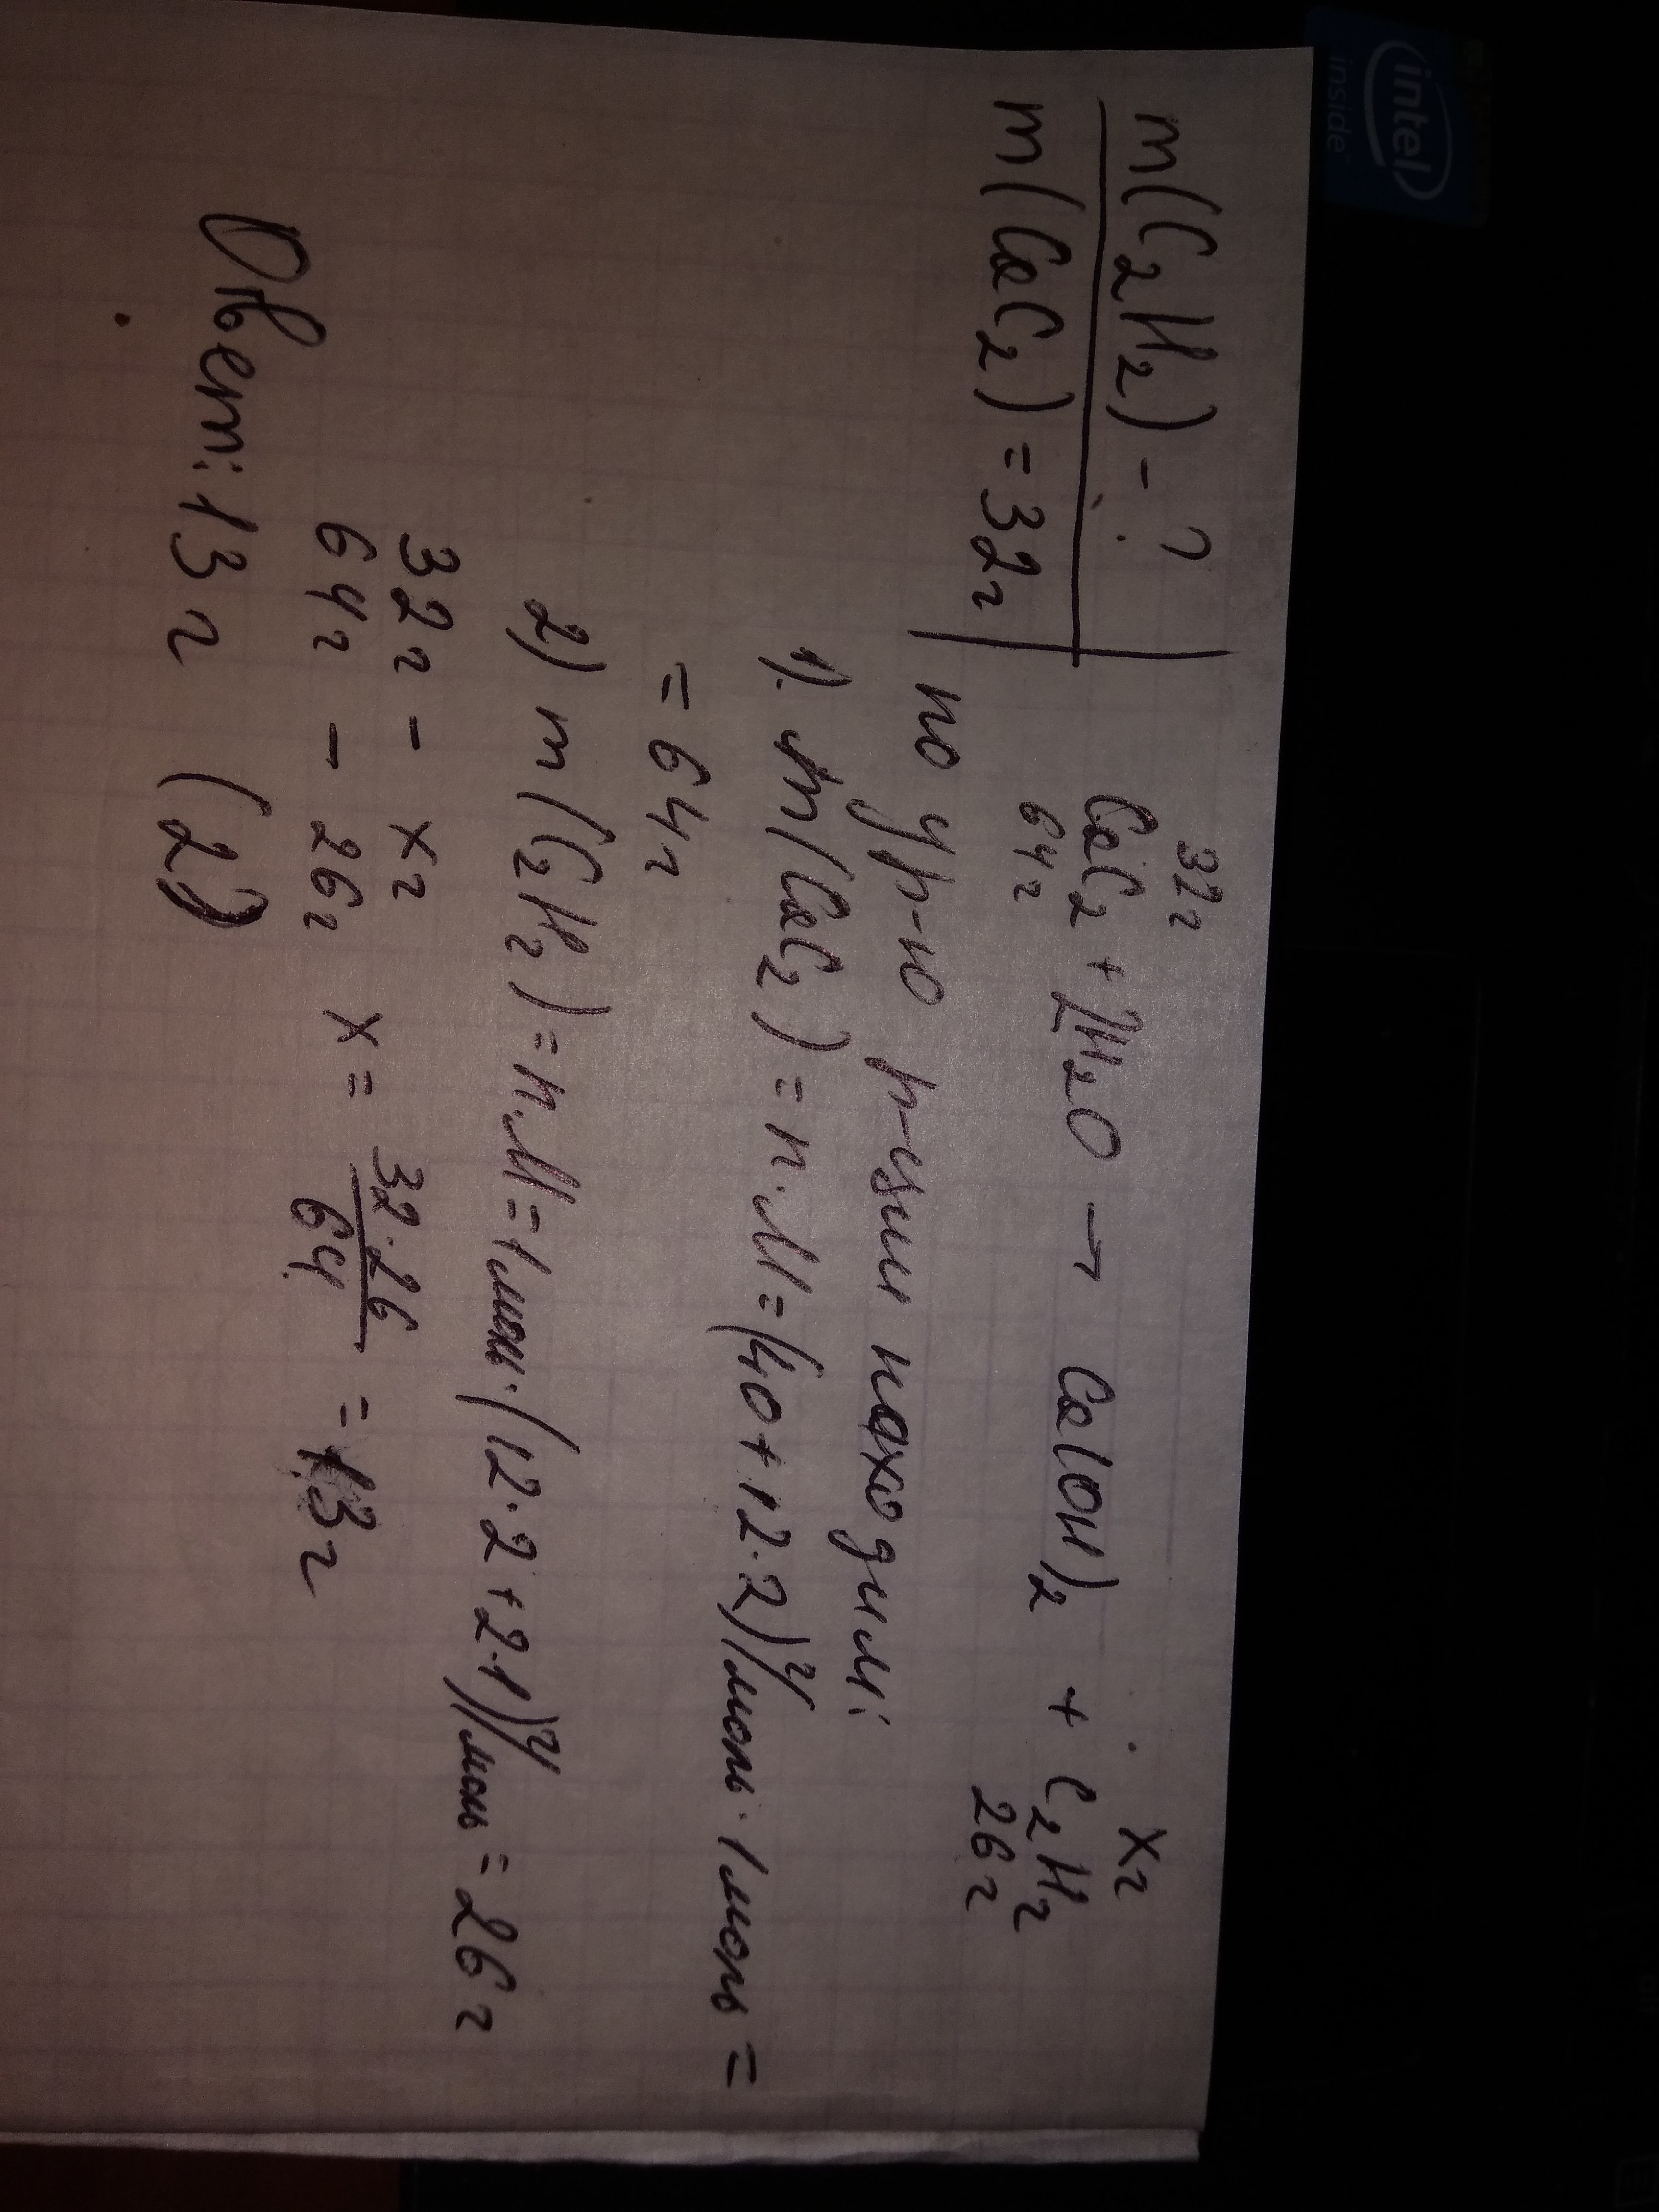 intel
inside
m(C₂H₂) - ?
m(CaC₂) = 32г
32г xг
CaC₂ + 2H₂O → Ca(OH)₂ + C₂H₂
64г 26г
по ур-ю р-ции находим:
1). m(CaC₂) = n·M = (40+12·2)г/моль·1моль =
= 64г
2) m(C₂H₂) = n·M = 1моль·(12·2+2·1)г/моль = 26г
32г - xг
64г - 26г x = 32·26/64 = 13г
Ответ: 13г (2)